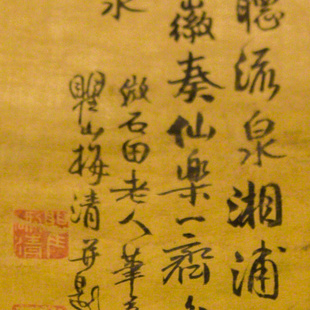 聽流泉湘浦
徽奏仙樂一齊
泉
倣石田老人筆意
瞿山梅清并題